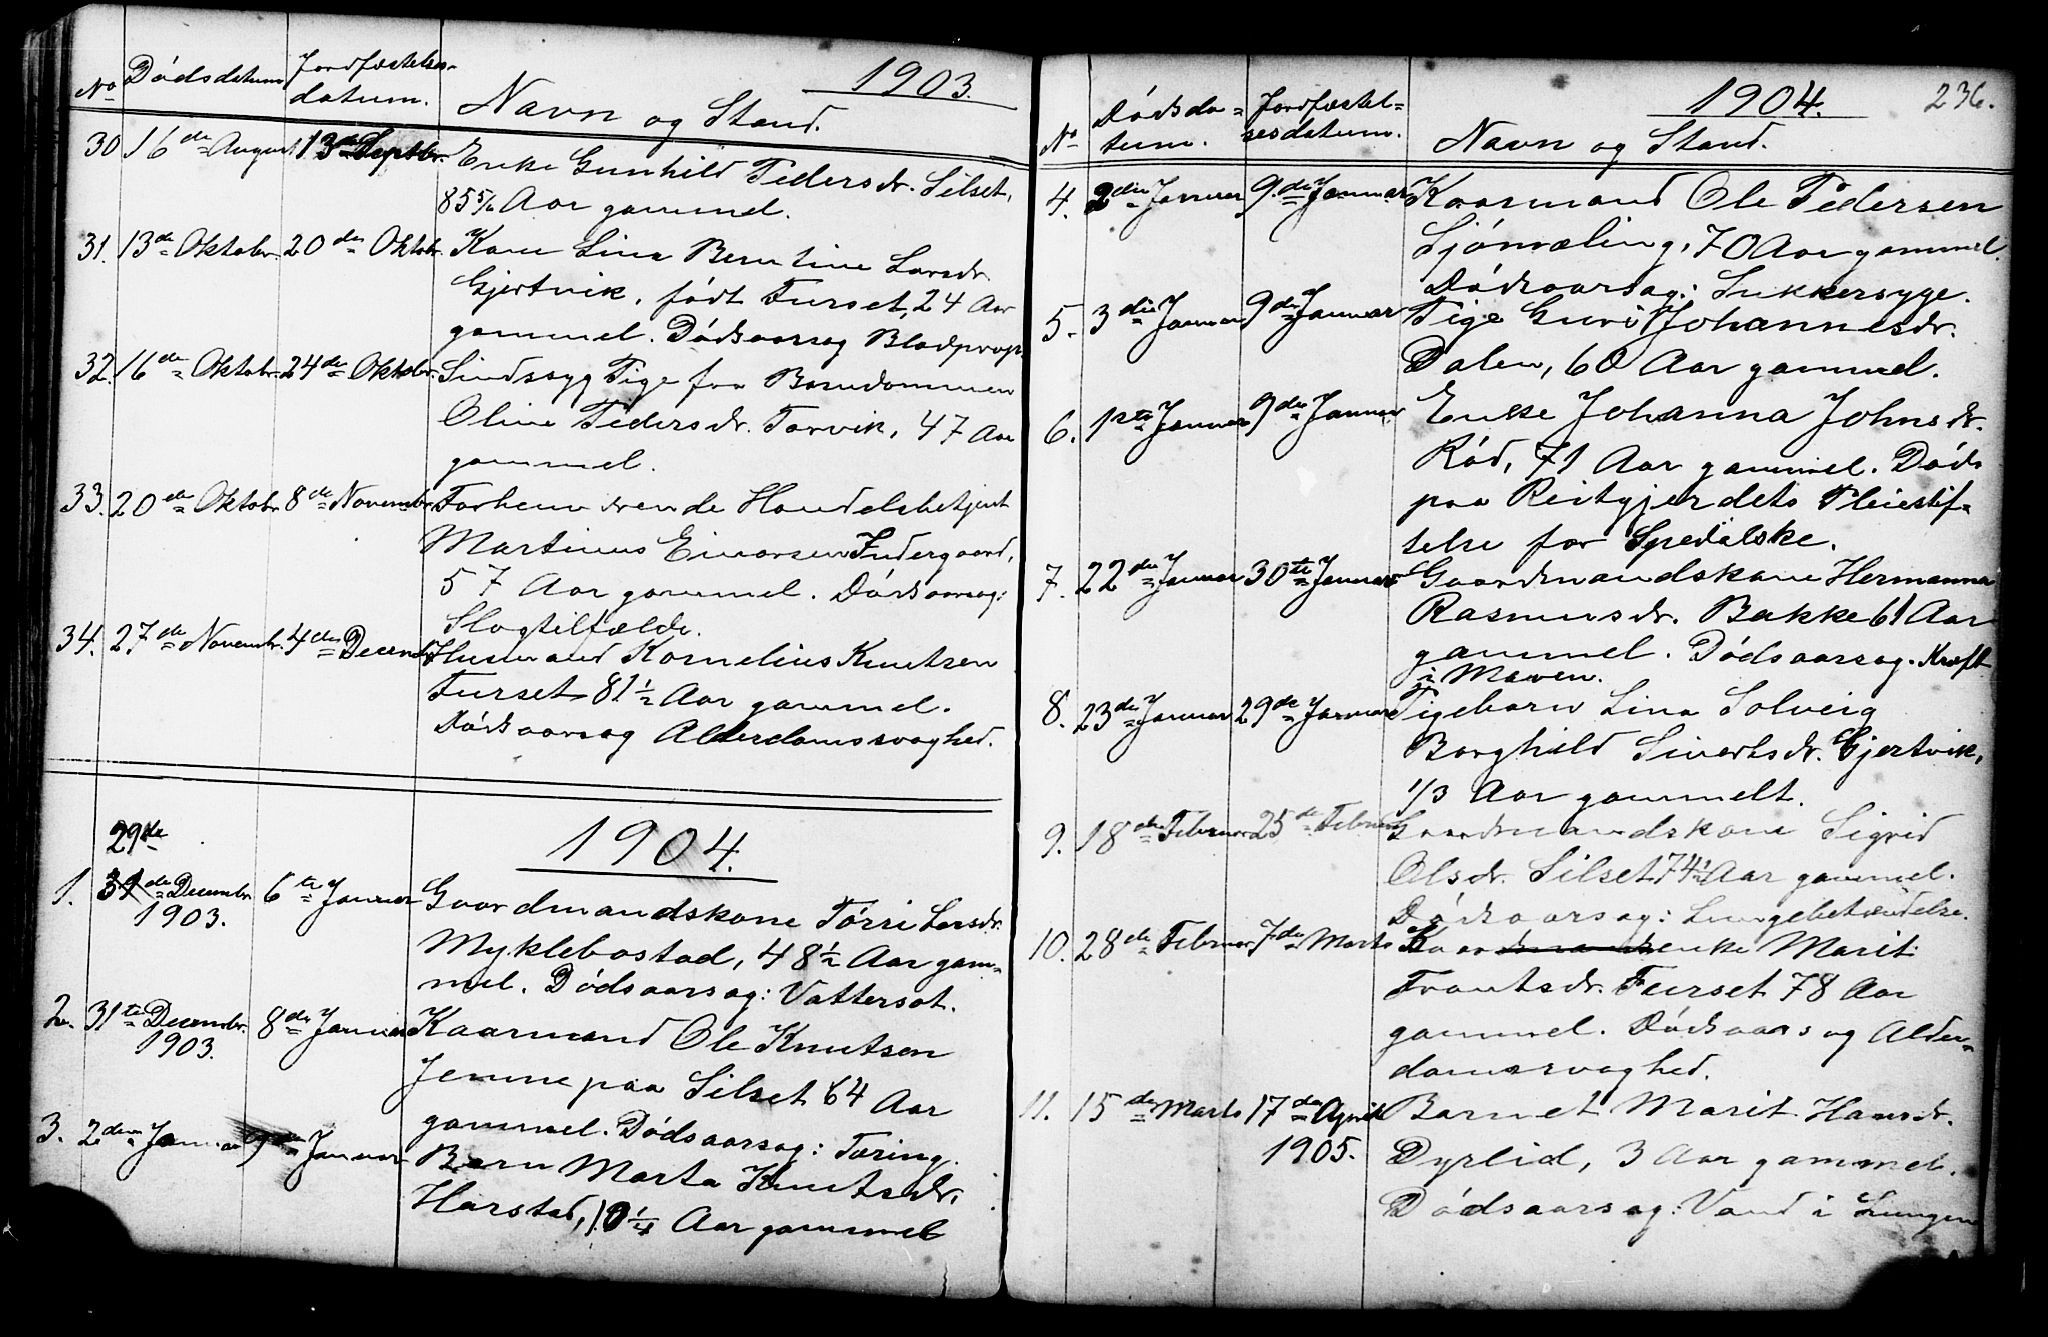 1903.
No Dødsdatum Jordfæstelses-
datum. Navn og Stand.
30 16de August 13de Septbr. Enke Gunhild Pedersdr. Silset,
85 5/6 Aar gammel.
31. 13de Oktobr. 20de Oktobr. Kone Lina Berntine Larsdr.
Gjertvik, født Furset, 24 Aar
gammel. Dødsaarsag Blodprop.
32. 16de Oktobr. 24de Oktobr. Sindssyg Pige fra Barndommen
Oline Pedersdr. Torvik, 47 Aar
gammel.
33. 20de Oktobr 8de Novembr. Forhenværende Handelsbetjent
Martinus Einarsen Indergaard,
57 Aar gammel. Dødsaarsag:
Slagtilfælde.
34. 27de Novembr. 4de Decembr. Husmand Kornelius Knutsen
Furset 81 1/2 Aar gammel.
Dødsaarsag Alderdomssvaghed.
1904.
29de
1. 31de Decembr. 6te Januar Gaardmandskone Tørri Larsdr.
1903.
Myklebostad, 48 1/2 Aar gam-
mel. Dødsaarsag: Vattersot.
2. 31te Decembr. 8de Januar Kaarmand Ole Knutsen
1903.
Jemne paa Silset 64 Aar
gammel. Dødsaarsag: Tæring.
3. 2den Januar 9de Januar Barn Marta Knutsdr.
Harstad, 10 1/4 Aar gammel
1904. 236.
No Dødsda- Jordfæstel-
tum. sesdatum. Navn og Stand.
4. 2den Januar 9de Januar Kaarmand Ole Pedersen
Sjømæling, 70 Aar gammel.
Dødsaarsag: Sukkersyge.
5. 3die Januar 9de Januar Pige Guri Johannesdr.
Dalen, 60 Aar gammel.
6. 1ste Januar 9de Januar Enke Johanna Johnsdr.
Rød, 71 Aar gammel. Døds
paa Reitgjerdets Pleiestif-
telse for Spedalske.
7. 22de Januar 30te Januar Gaardmandskone Hermanna
Rasmusdr. Bakke 61 Aar
gammel. Dødsaarsag. Kræft
i Maven.
8. 23de Januar 29de Januar Pigebarn Lina Solveig
Borghild Sivertsdr. Gjertvik,
1/3 Aar gammelt.
9. 18de Februar 25de Februar Gaardmandskone Sigrid
Olsdr. Silset 74 1/2 Aar gammel.
Dødsaarsag: Lungebetændelse.
10. 28de Februar 7de Marts Kaarmandsenke Marit
Frantsdr. Furset 78 Aar
gammel. Dødsaarsag Alder-
domssvaghed.
11. 15de Marts 17de April Barnet Marit Hansdr.
1905. Dyrlid, 3 Aar gammel.
Dødsaarsag: Vand i Lungen